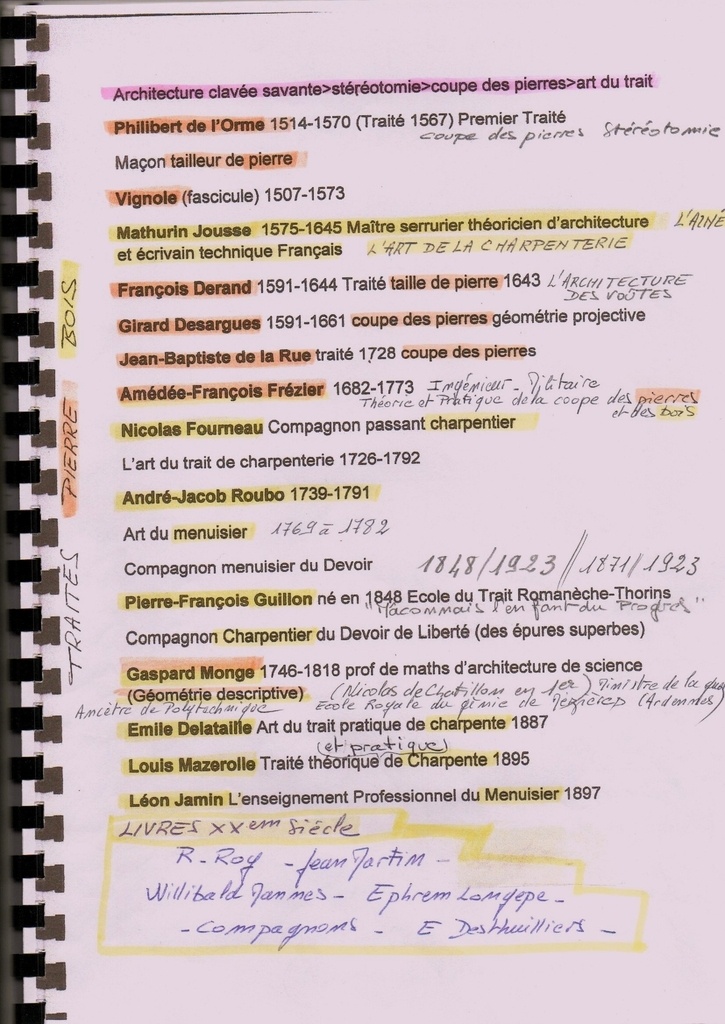 Architecture clavée savante>stéréotomie>coupe des pierres>art du trait
Philibert de l'Orme 1514-1570 (Traité 1567) Premier Traité
coupe des pierres Stéréotomie
Maçon tailleur de pierre
Vignole (fascicule) 1507-1573
Mathurin Jousse 1575-1645 Maître serrurier théoricien d'architecture L'AINÉ
et écrivain technique Français L'ART DE LA CHARPENTERIE
François Derand 1591-1644 Traité taille de pierre 1643 L'ARCHITECTURE
DES VOÛTES
Girard Desargues 1591-1661 coupe des pierres géométrie projective
Jean-Baptiste de la Rue traité 1728 coupe des pierres
Amédée-François Frézier 1682-1773 Ingénieur - Militaire
Théorie et Pratique de la coope des pierres
et des bois
Nicolas Fourneau Compagnon passant charpentier
L'art du trait de charpenterie 1726-1792
André-Jacob Roubo 1739-1791
Art du menuisier 1769 à 1782
Compagnon menuisier du Devoir 1848/1923//1871/1923
Pierre-François Guillon né en 1848 Ecole du Trait Romanèche-Thorins
"Maconnais l'enfant du Progrès"
Compagnon Charpentier du Devoir de Liberté (des épures superbes)
Gaspard Monge 1746-1818 prof de maths d'architecture de science
(Géométrie descriptive) (Nicolas de Chatillon en 1er) Ministre de la
Ancètre de Polytechnique Ecole Royale du génie de Mezières (Ardennes)
Emile Delataille Art du trait pratique de charpente 1887
(et pratique)
Louis Mazerolle Traité théorique de Charpente 1895
Léon Jamin L'enseignement Professionnel du Menuisier 1897
LIVRES XXem Siécle
R. Roy - Jean Martin -
Willibald Mannes - Ephrem Longepe -
- Compagnons - E Desthuilliers -
TRAITES PIERRE BOIS